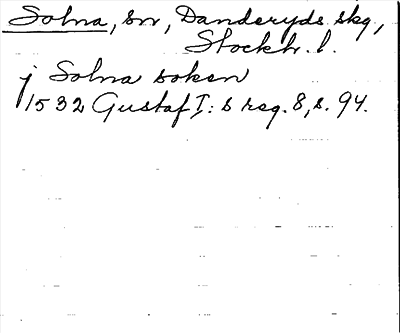 Solna, sn, Danderyds skg,
Stockh. l.
j Solna soken
1532 Gustaf I:s reg. 8, s. 94.